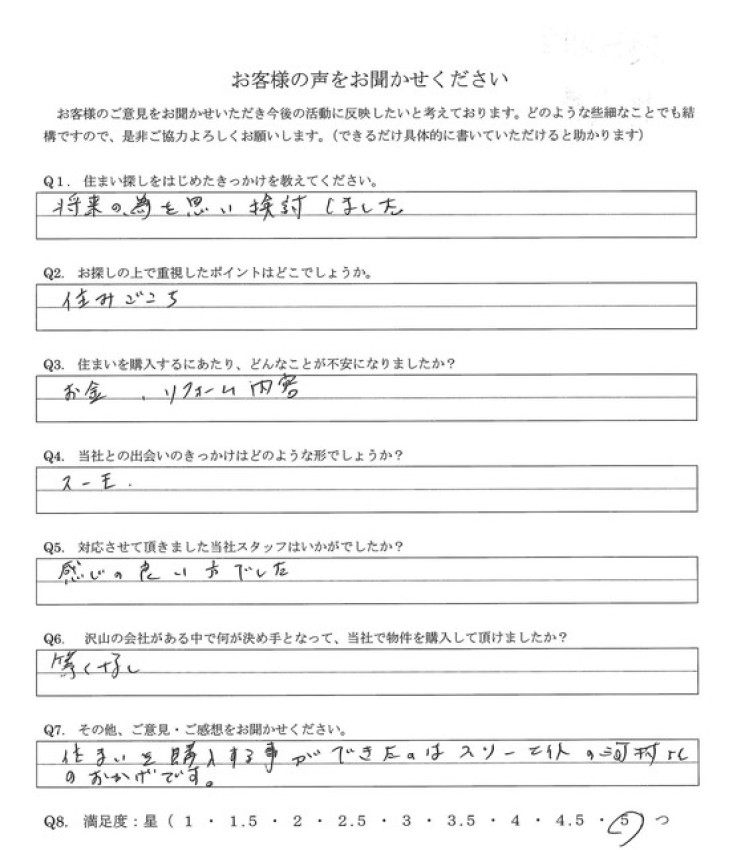 お客様の声をお聞かせください
お客様のご意見をお聞かせいただき今後の活動に反映したいと考えております。どのような些細なことでも結
構ですので、是非ご協力よろしくお願いします。（できるだけ具体的に書いていただけると助かります）
Q1. 住まい探しをはじめたきっかけを教えてください。
将来の為を思い検討しました
Q2. お探しの上で重視したポイントはどこでしょうか。
住みごこち
Q3. 住まいを購入するにあたり、どんなことが不安になりましたか？
お金、リフォーム内容
Q4. 当社との出会いのきっかけはどのような形でしょうか？
スーモ.
Q5. 対応させて頂きました当社スタッフはいかがでしたか？
感じの良い方でした
Q6. 沢山の会社がある中で何が決め手となって、当社で物件を購入して頂けましたか？
Q7. その他、ご意見・ご感想をお聞かせください。
住まいを購入する事ができたのはスリーエイトの河村さん
のおかげです。
Q8. 満足度：星（ 1 ・ 1.5 ・ 2 ・ 2.5 ・ 3 ・ 3.5 ・ 4 ・ 4.5 ・ 5 ）つ